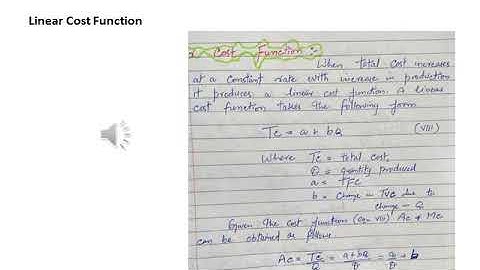 Linear Cost Function
Cost Function :-
When total cost increases
at a constant rate with increase in production
it produces a linear cost function. A linear
cost function takes the following form
Tc = a + bQ (VIII)
Where Tc = total cost
Q = quantity produced
a = TFC
b = change in TVC due to
change in Q
Given the cost function (Eqn VIII) Ac & Mc
can be obtained as follows
Ac = Tc/Q = a+bQ/Q = a/Q + b